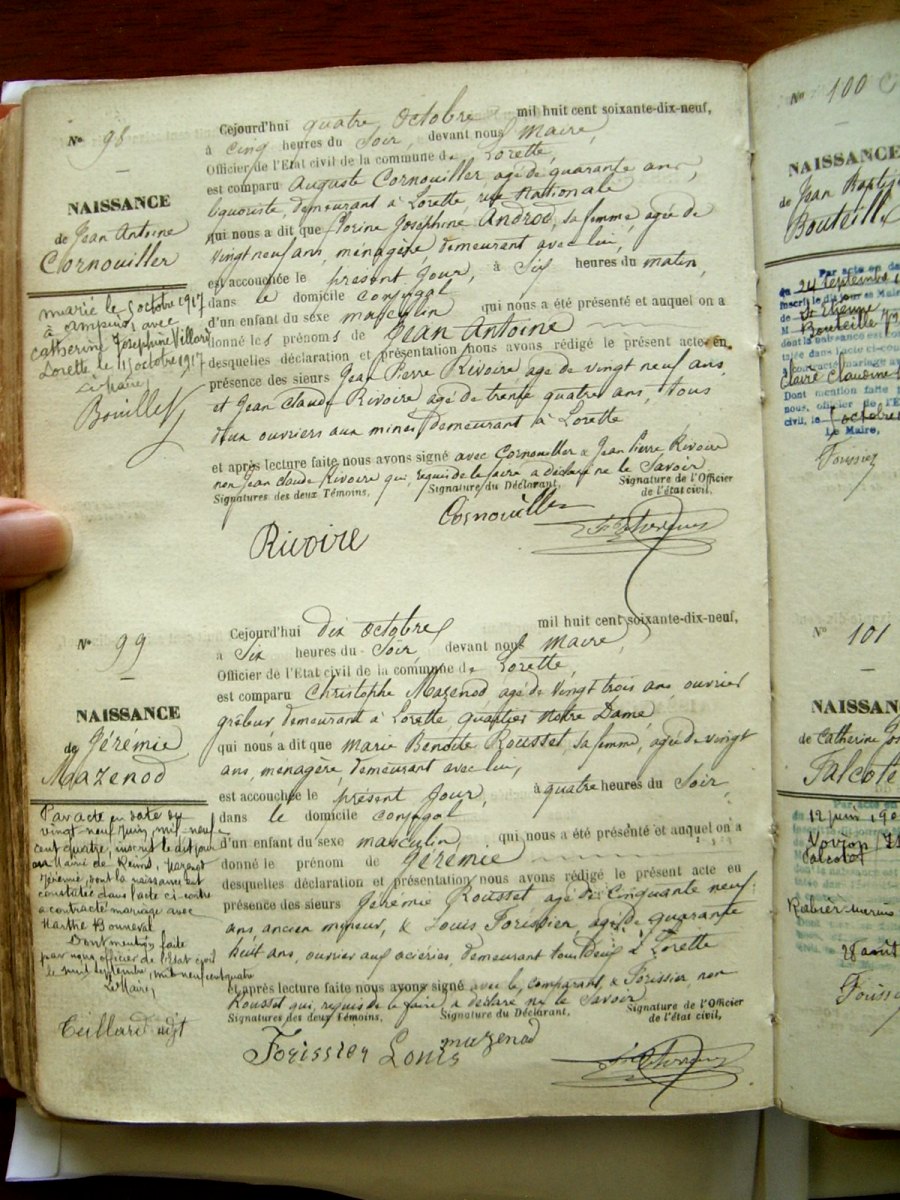 Nº 98
NAISSANCE
de Jean Antoine
Cornouiller
marié le 5 octobre 1917
à Ampuis, avec
Catherine Joséphine Villard
Lorette, le 15 octobre 1917
Le Maire,
Cejourd'hui quatre Octobre mil huit cent soixante-dix-neuf,
à Cinq heures du Soir, devant nous Maire,
Officier de l'Etat civil de la commune de Lorette,
est comparu Auguste Cornouiller agé de quarante ans,
liquoriste, demeurant à Lorette, rue Nationale
qui nous a dit que Dorine Joséphine Androd, sa femme, agée de
vingt neuf ans, ménagère, demeurant avec lui,
est accouchée le présent Jour, à Six heures du matin,
dans le domicile conjugal
d'un enfant du sexe masculin qui nous a été présenté et auquel on a
donné les prénoms de Jean Antoine
desquelles déclaration et présentation nous avons rédigé le présent acte en
présence des sieurs Jean Pierre Rivoire, agé de vingt neuf ans,
et Jean Claude Rivoire agé de trente quatre ans, tous
deux ouvriers aux mines, demeurant à Lorette
et après lecture faite, nous avons signé avec Cornouiller & Jean Pierre Rivoire
non Jean Claude Rivoire qui, requis de le faire, a déclaré ne le Savoir
Signatures des deux Témoins, Signature du Déclarant, Signature de l'Officier
de l'état civil,
Cornouiller
Rivoire
Nº 99
NAISSANCE
de Jérémie
Mazenod
Par acte en date du
vingt neuf Juin, mil neuf
cent quatre, inscrit le dit jour
en Mairie de Reims, Mazenod
Jérémie, dont la naissance est
constatée dans l'acte ci-contre
a contracté mariage avec
Marthe Bonneval
Dont mention faite
par nous officier de l'Etat civil
le huit septembre, mil neuf cent quatre
Le Maire,
Teillard adjt
Cejourd'hui dix octobre mil huit cent soixante-dix-neuf,
à Six heures du Soir, devant nous Maire,
Officier de l'Etat civil de la commune de Lorette,
est comparu Christophe Mazenod agé de vingt trois ans, ouvrier
grêleur, demeurant à Lorette quartier Notre Dame,
qui nous a dit que Marie Benoîte Rousset, sa femme, agée de vingt
ans, ménagère, demeurant avec lui,
est accouchée le présent Jour, à quatre heures du Soir,
dans le domicile conjugal
d'un enfant du sexe masculin, qui nous a été présenté et auquel on a
donné le prénom de Jérémie
desquelles déclaration et présentation nous avons rédigé le présent acte en
présence des sieurs Jérémie Rousset agé de Cinquante neuf
ans, ancien mineur, & Louis Forissier, agé de quarante
huit ans, ouvrier aux aciéries, demeurant tous deux à Lorette
et après lecture faite nous avons signé avec le comparant, & Forissier, non
Rousset qui, requis de le faire, a déclaré ne le Savoir
Signatures des deux Témoins, Signature du Déclarant, Signature de l'Officier
de l'état civil,
Forissier Louis mazenod
Nº 100
NAISSANCE
de Jean Baptiste
Bouteille
Par acte en da
du 24 septembre
de St Etienne
Bouteille
Claire Claudine
Dont mention faite
nous, officier de l'E
civil, le octobre
Le Maire,
Nº 101
NAISSAN
de Catherine
12 juin
28 août